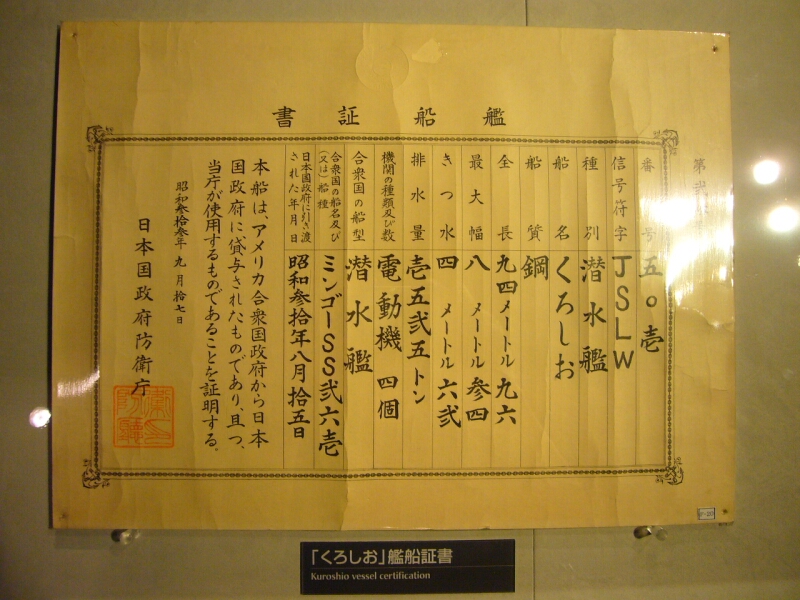 艦船証書
第
番号 五〇壱
信号符字 JSLW
種別 潜水艦
船名 くろしお
船質 鋼
全長 九四メートル九六
最大幅 八メートル参四
きつ水 四メートル六弐
排水量 壱五弐五トン
機関の種類及び数 電動機四個
合衆国の船型 潜水艦
合衆国の船名及び(又は)船種 ミンゴーSS弐六壱
日本国政府に引き渡された年月日 昭和参拾年八月拾五日
本船は、アメリカ合衆国政府から日本
国政府に、貸与されたものであり、且つ、
当庁が使用するものであることを証明する。
昭和参拾参年九月拾七日
日本国政府防衛庁
「くろしお」艦船証書
Kuroshio vessel certification